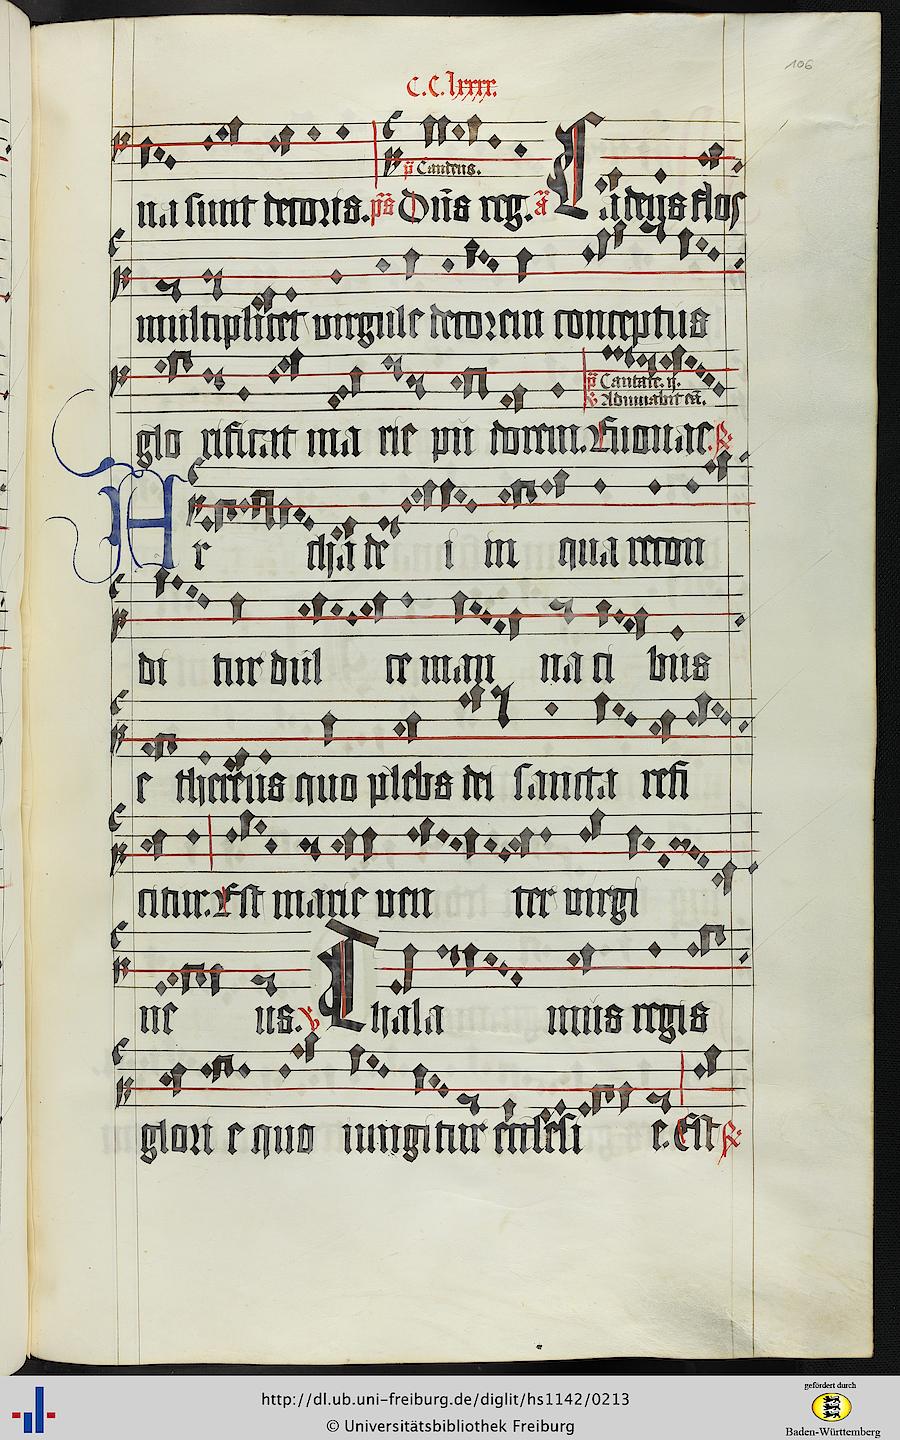 106
C.C.lxxxx.
na sunt decoris. ps Dn̄s reg. a᷃ Cādens flos
p᷃ Cantens.
multiplicet virgule decorem conceptus
p᷃ Cantate. ij.
glo rificat ma rie pu dorem. Euouae. R̷
Ar cha de i in qua recon
di tur dul ce man na ci bus
e thereus quo plebs dei sancta refi
citur. Est marie ven ter virgi
ne us. V̷ Thala mus regis
glori e quo iungitur eccl̄esi e. Est R̷
http://dl.ub.uni-freiburg.de/diglit/hs1142/0213
© Universitätsbibliothek Freiburg
gefördert durch
Baden-Württemberg